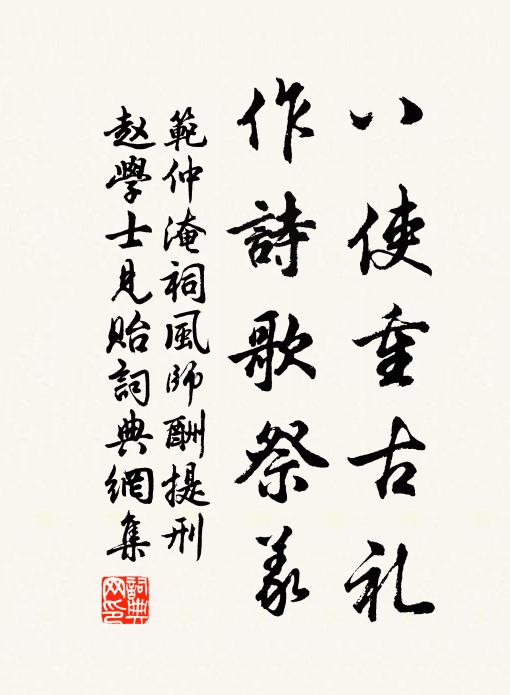 八使重古礼
作詩歌祭義
範仲淹祠風師酬提刑
赵學士見貽詞典網集
詞典
网印